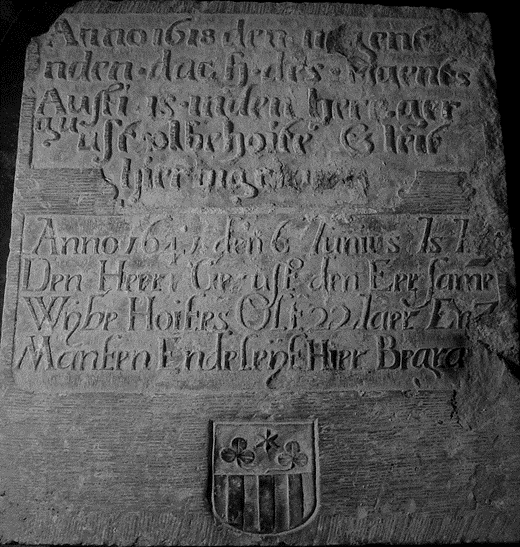 Anno 1618 den negent
nden dach des Maents
Austi is inden here ger
ust olbe hoite & leit
hier
Anno 1641 den 6 Iunius Is I
Den Heer Gerust den Eersame
Wybe Hoites Olt 22 Iaer En
Manten Ende Leyt Hier Begra